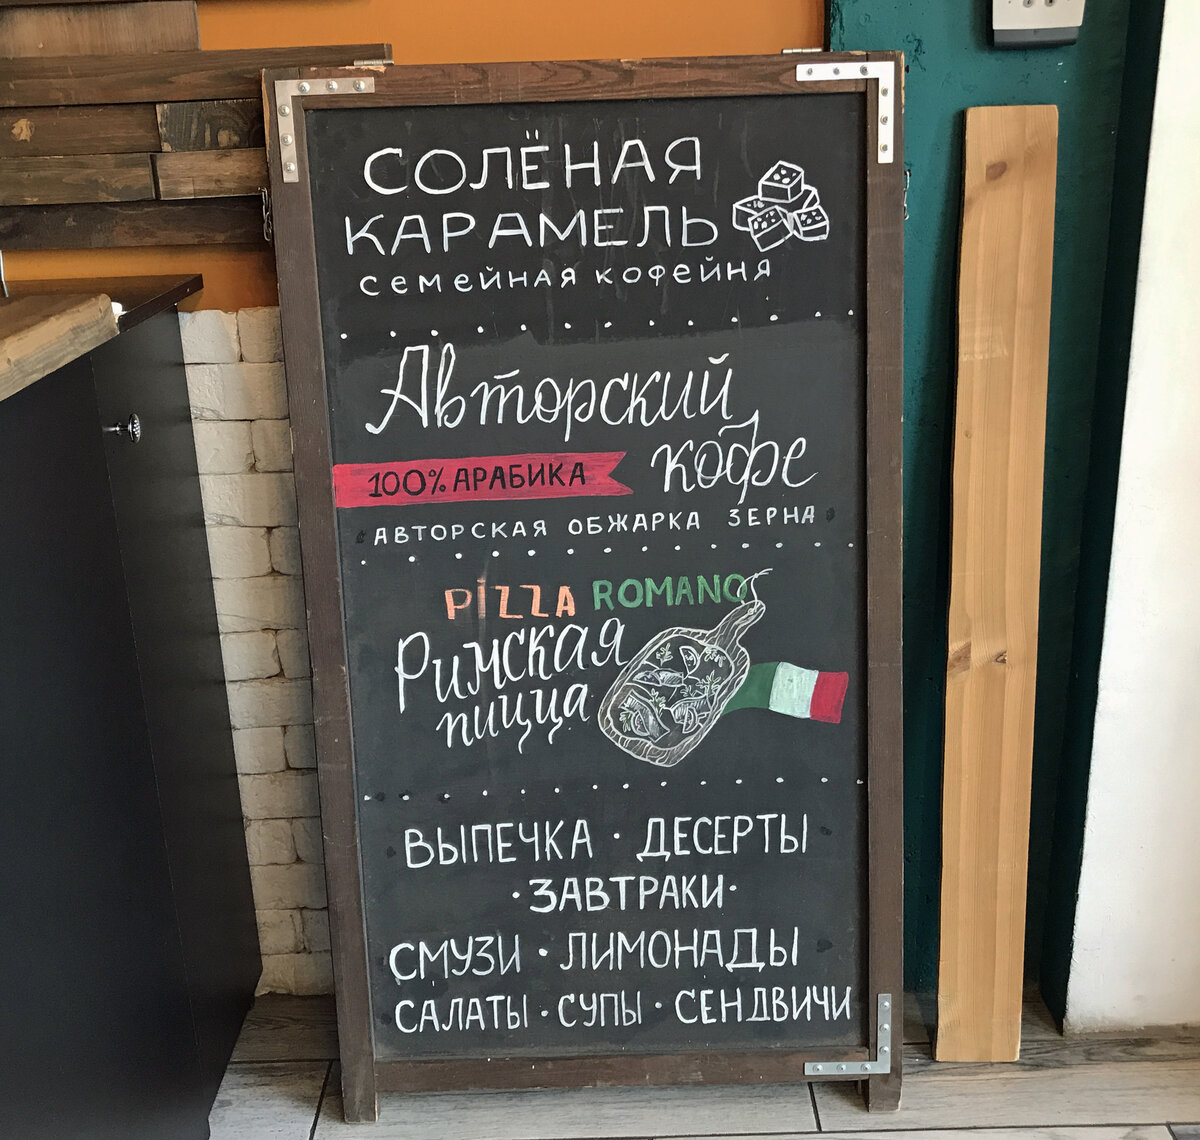 СОЛЁНАЯ
КАРАМЕЛЬ
семейная кофейня
Авторский
кофе
100% АРАБИКА
АВТОРСКАЯ ОБЖАРКА ЗЕРНА
PIZZA ROMANO
Римская
пицца
ВЫПЕЧКА · ДЕСЕРТЫ
· ЗАВТРАКИ ·
СМУЗИ · ЛИМОНАДЫ
САЛАТЫ · СУПЫ · СЕНДВИЧИ